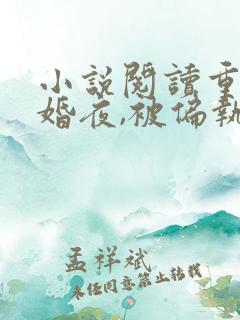 小說閱讀重
婚夜,被偏執
孟祥斌
未经同意禁止转载